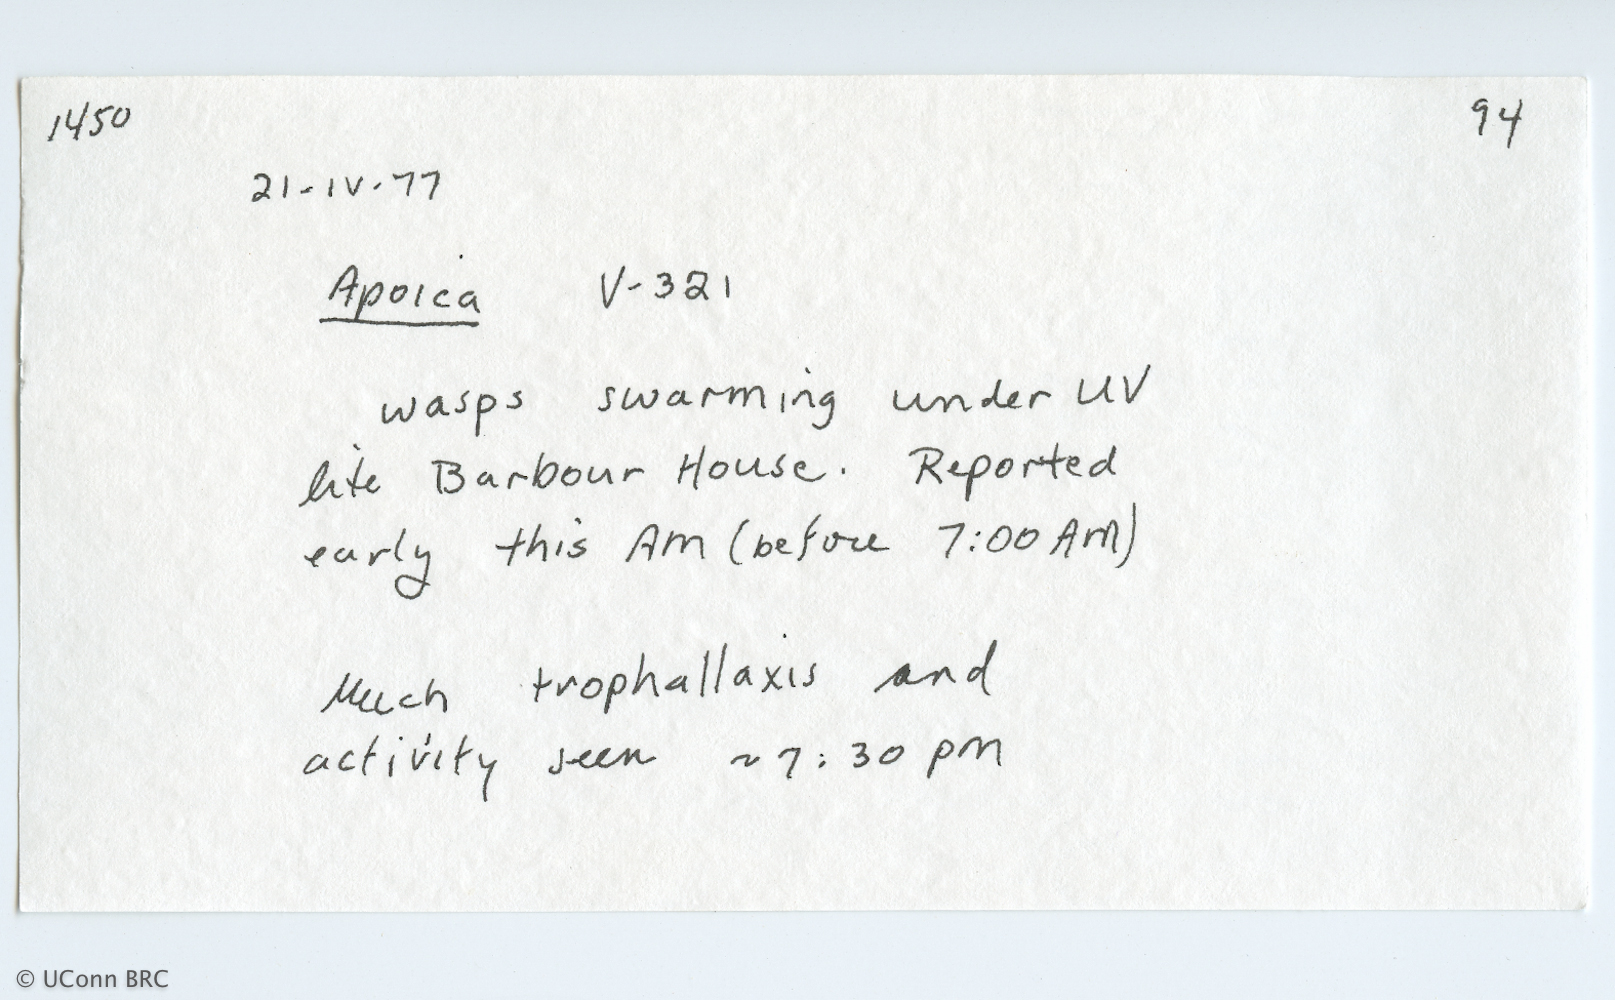 1450 94
21-IV-77
Apoica V-321
wasps swarming under UV
lite Barbour House. Reported
early this AM (before 7:00 AM)
Much trophallaxis and
activity seen ~7:30 pm
© UConn BRC